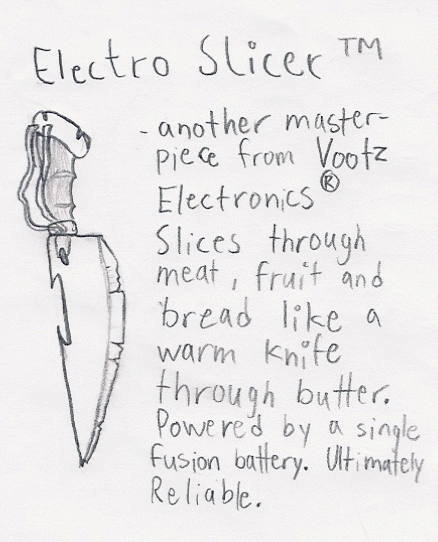 Electro Slicer™
- another master-
piece from Vootz
Electronics®
Slices through
meat, fruit and
bread like a
warm knife
through butter.
Powered by a single
fusion battery. Ultimately
Reliable.